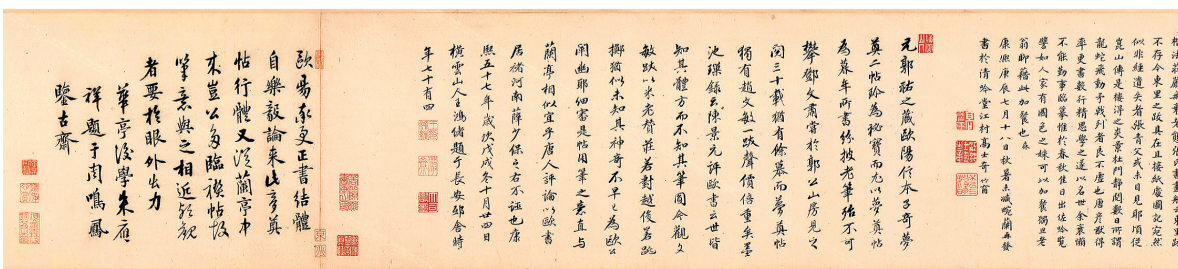 不存今東里之跋具在且接紙處圖記宛然
似非經遺失者張青父或未目見耶頃從
崑山傳是樓得之炎景杜門靜閱數日所謂
龍蛇飛動矛戟列者良不虛也唐彥猷得
率更書數行精思學之遂以名世余衰懶
不能勤事臨摹惟於春秋佳日出佐吟覽
譬如人家有國色之姝可以加餐獨旦老
翁聊藉此加餐也
康熙庚辰七月十八日秋暑未減晚蘭再發
書於清吟堂江村高士奇竹窗
元郭祐之藏歐陽信本子奇夢
奠二帖詮為祕寶而尤以夢奠帖
為暮年所書紛披老筆殆不可
攀鄧文肅嘗於郭公山房見之
閱三十載猶有餘慕而夢奠帖
獨有趙文敏一跋聲價倍重矣墨
池璅錄云陳景元評歐書云世皆
知其體方而不知其筆圓今觀文
敏跋以米老贊莊若對越俊若跳
擲猶似未知其神奇不早之為歐公
闡幽耶細審是帖用筆之意直與
蘭亭相似宜乎唐人評論以歐書
居褚河南薛少保之右不誣也康
熙五十七年歲次戊戌冬十月廿四日
橫雲山人王鴻緒題于長安邸舍時
年七十有四
歐陽率更正書結體
自樂毅論來此夢奠
帖行體又從蘭亭中
來豈以多臨禊帖故
筆意與之相近耶觀
者要於眼外出力
華亭後學朱應
祥題于周鳴鳳
鑒古齋